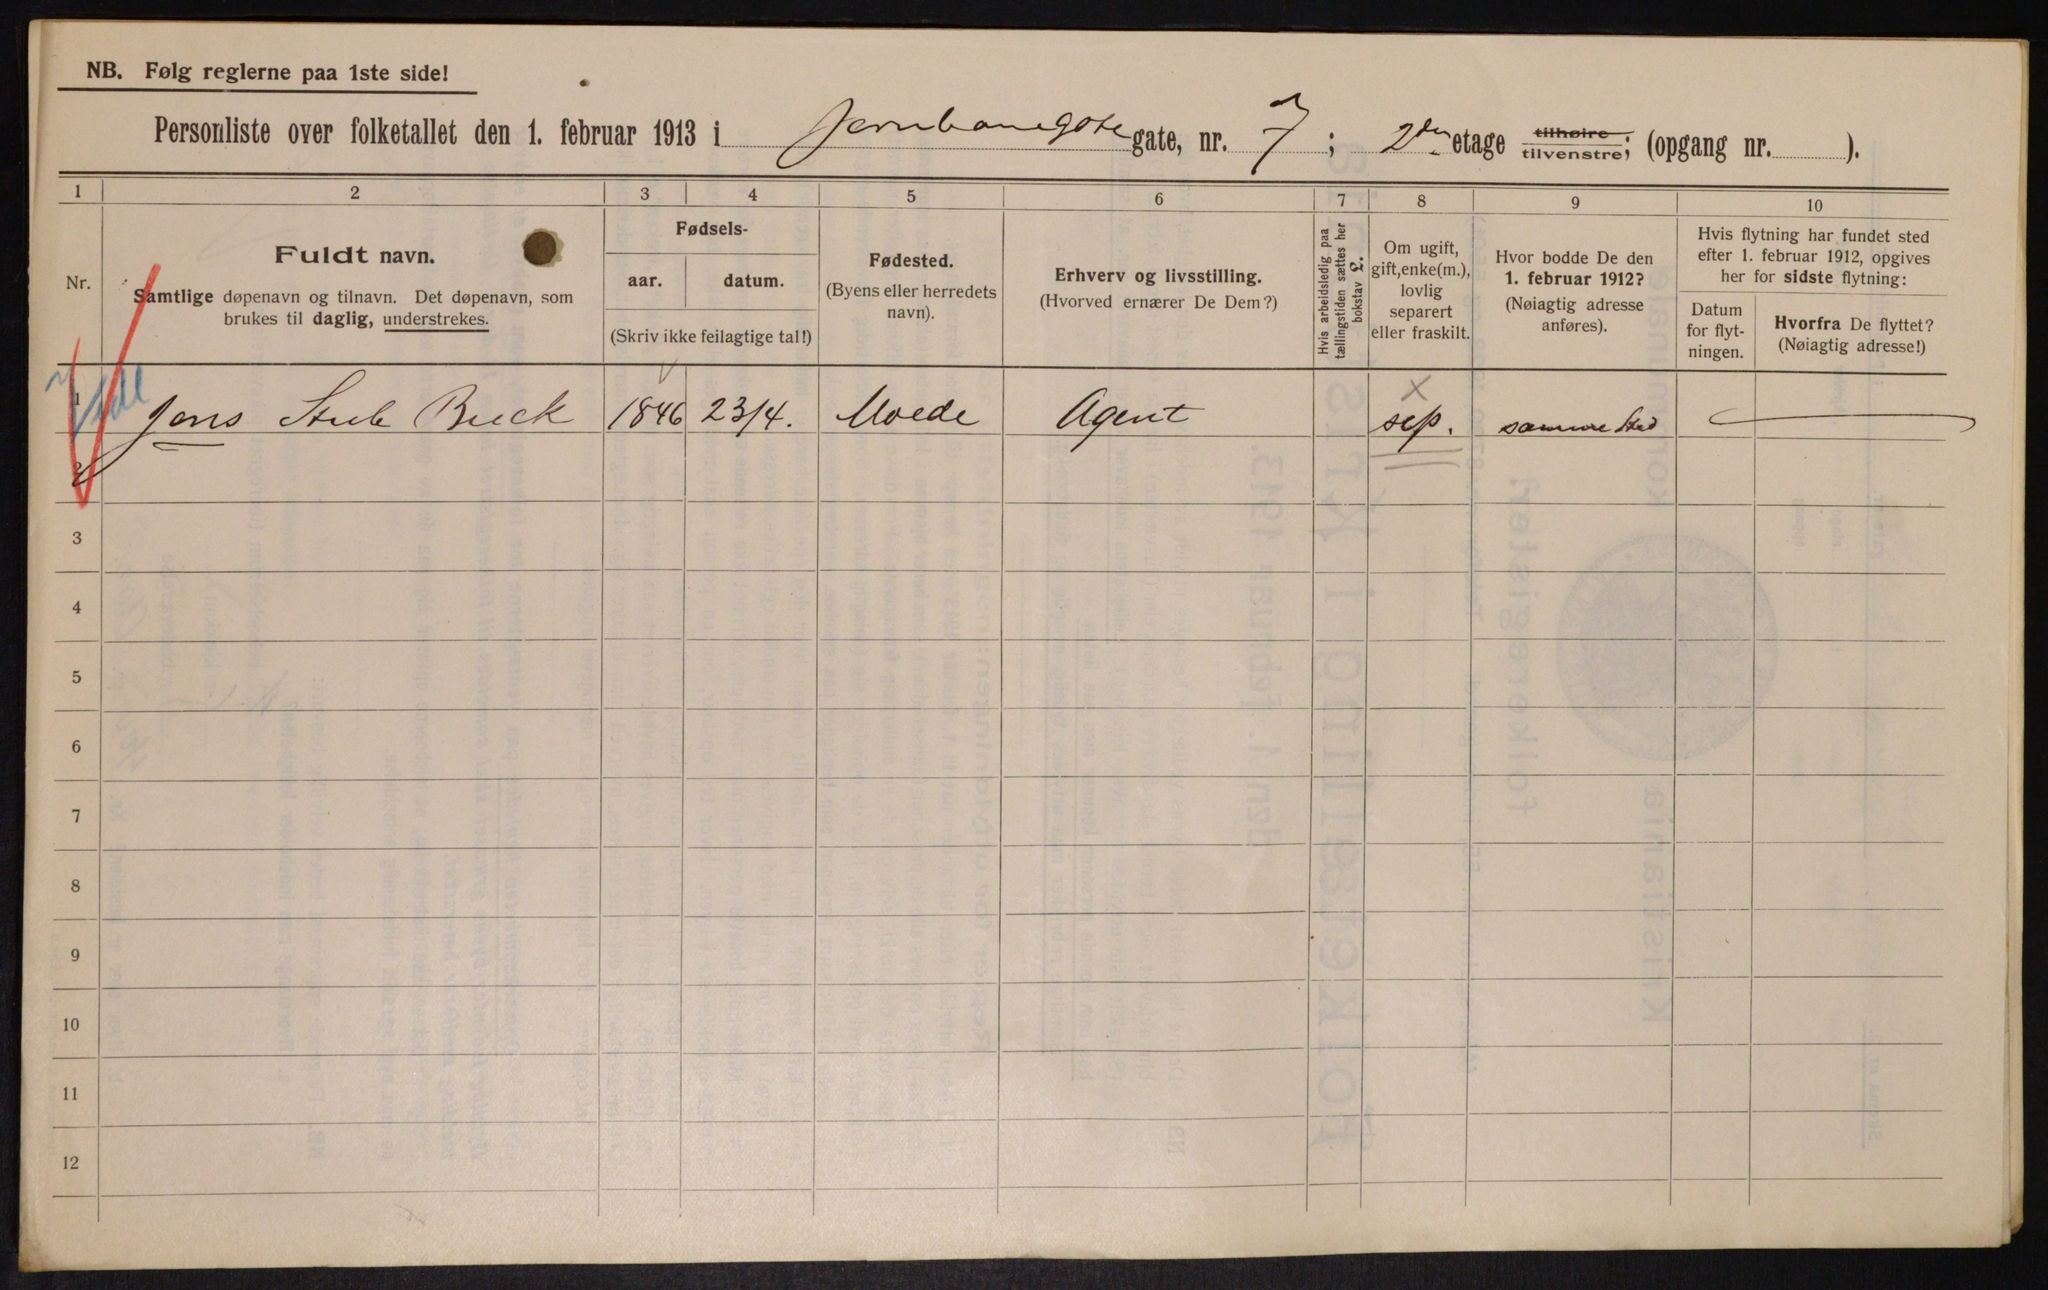 NB. Følg reglerne paa 1ste side!
Personliste over folketallet den 1. februar 1913 i Jernbanegate gate, nr. 7; 2den etage tilhøire tilvenstre; (opgang nr. ).
1 2 3 4 5 6 7 8 9 10
Nr.
Fuldt navn.
Samtlige døpenavn og tilnavn. Det døpenavn, som
brukes til daglig, understrekes.
Fødsels-
aar. datum.
(Skriv ikke feilagtige tal!)
Fødested.
(Byens eller herredets
navn).
Erhverv og livsstilling.
(Hvorved ernærer De Dem?)
Hvis arbeidsledig paa
tællingstiden sættes her
bokstav £.
Om ugift,
gift, enke(m.),
lovlig
separert
eller fraskilt.
Hvor bodde De den
1. februar 1912?
(Nøiagtig adresse
anføres).
Hvis flytning har fundet sted
efter 1. februar 1912, opgives
her for sidste flytning:
Datum
for flyt-
ningen.
Hvorfra De flyttet?
(Nøiagtig adresse!)
1 Jens Stub Beck 1846 23/4. Moede Agent sep. samme sted
2
3
4
5
6
7
8
9
10
11
12